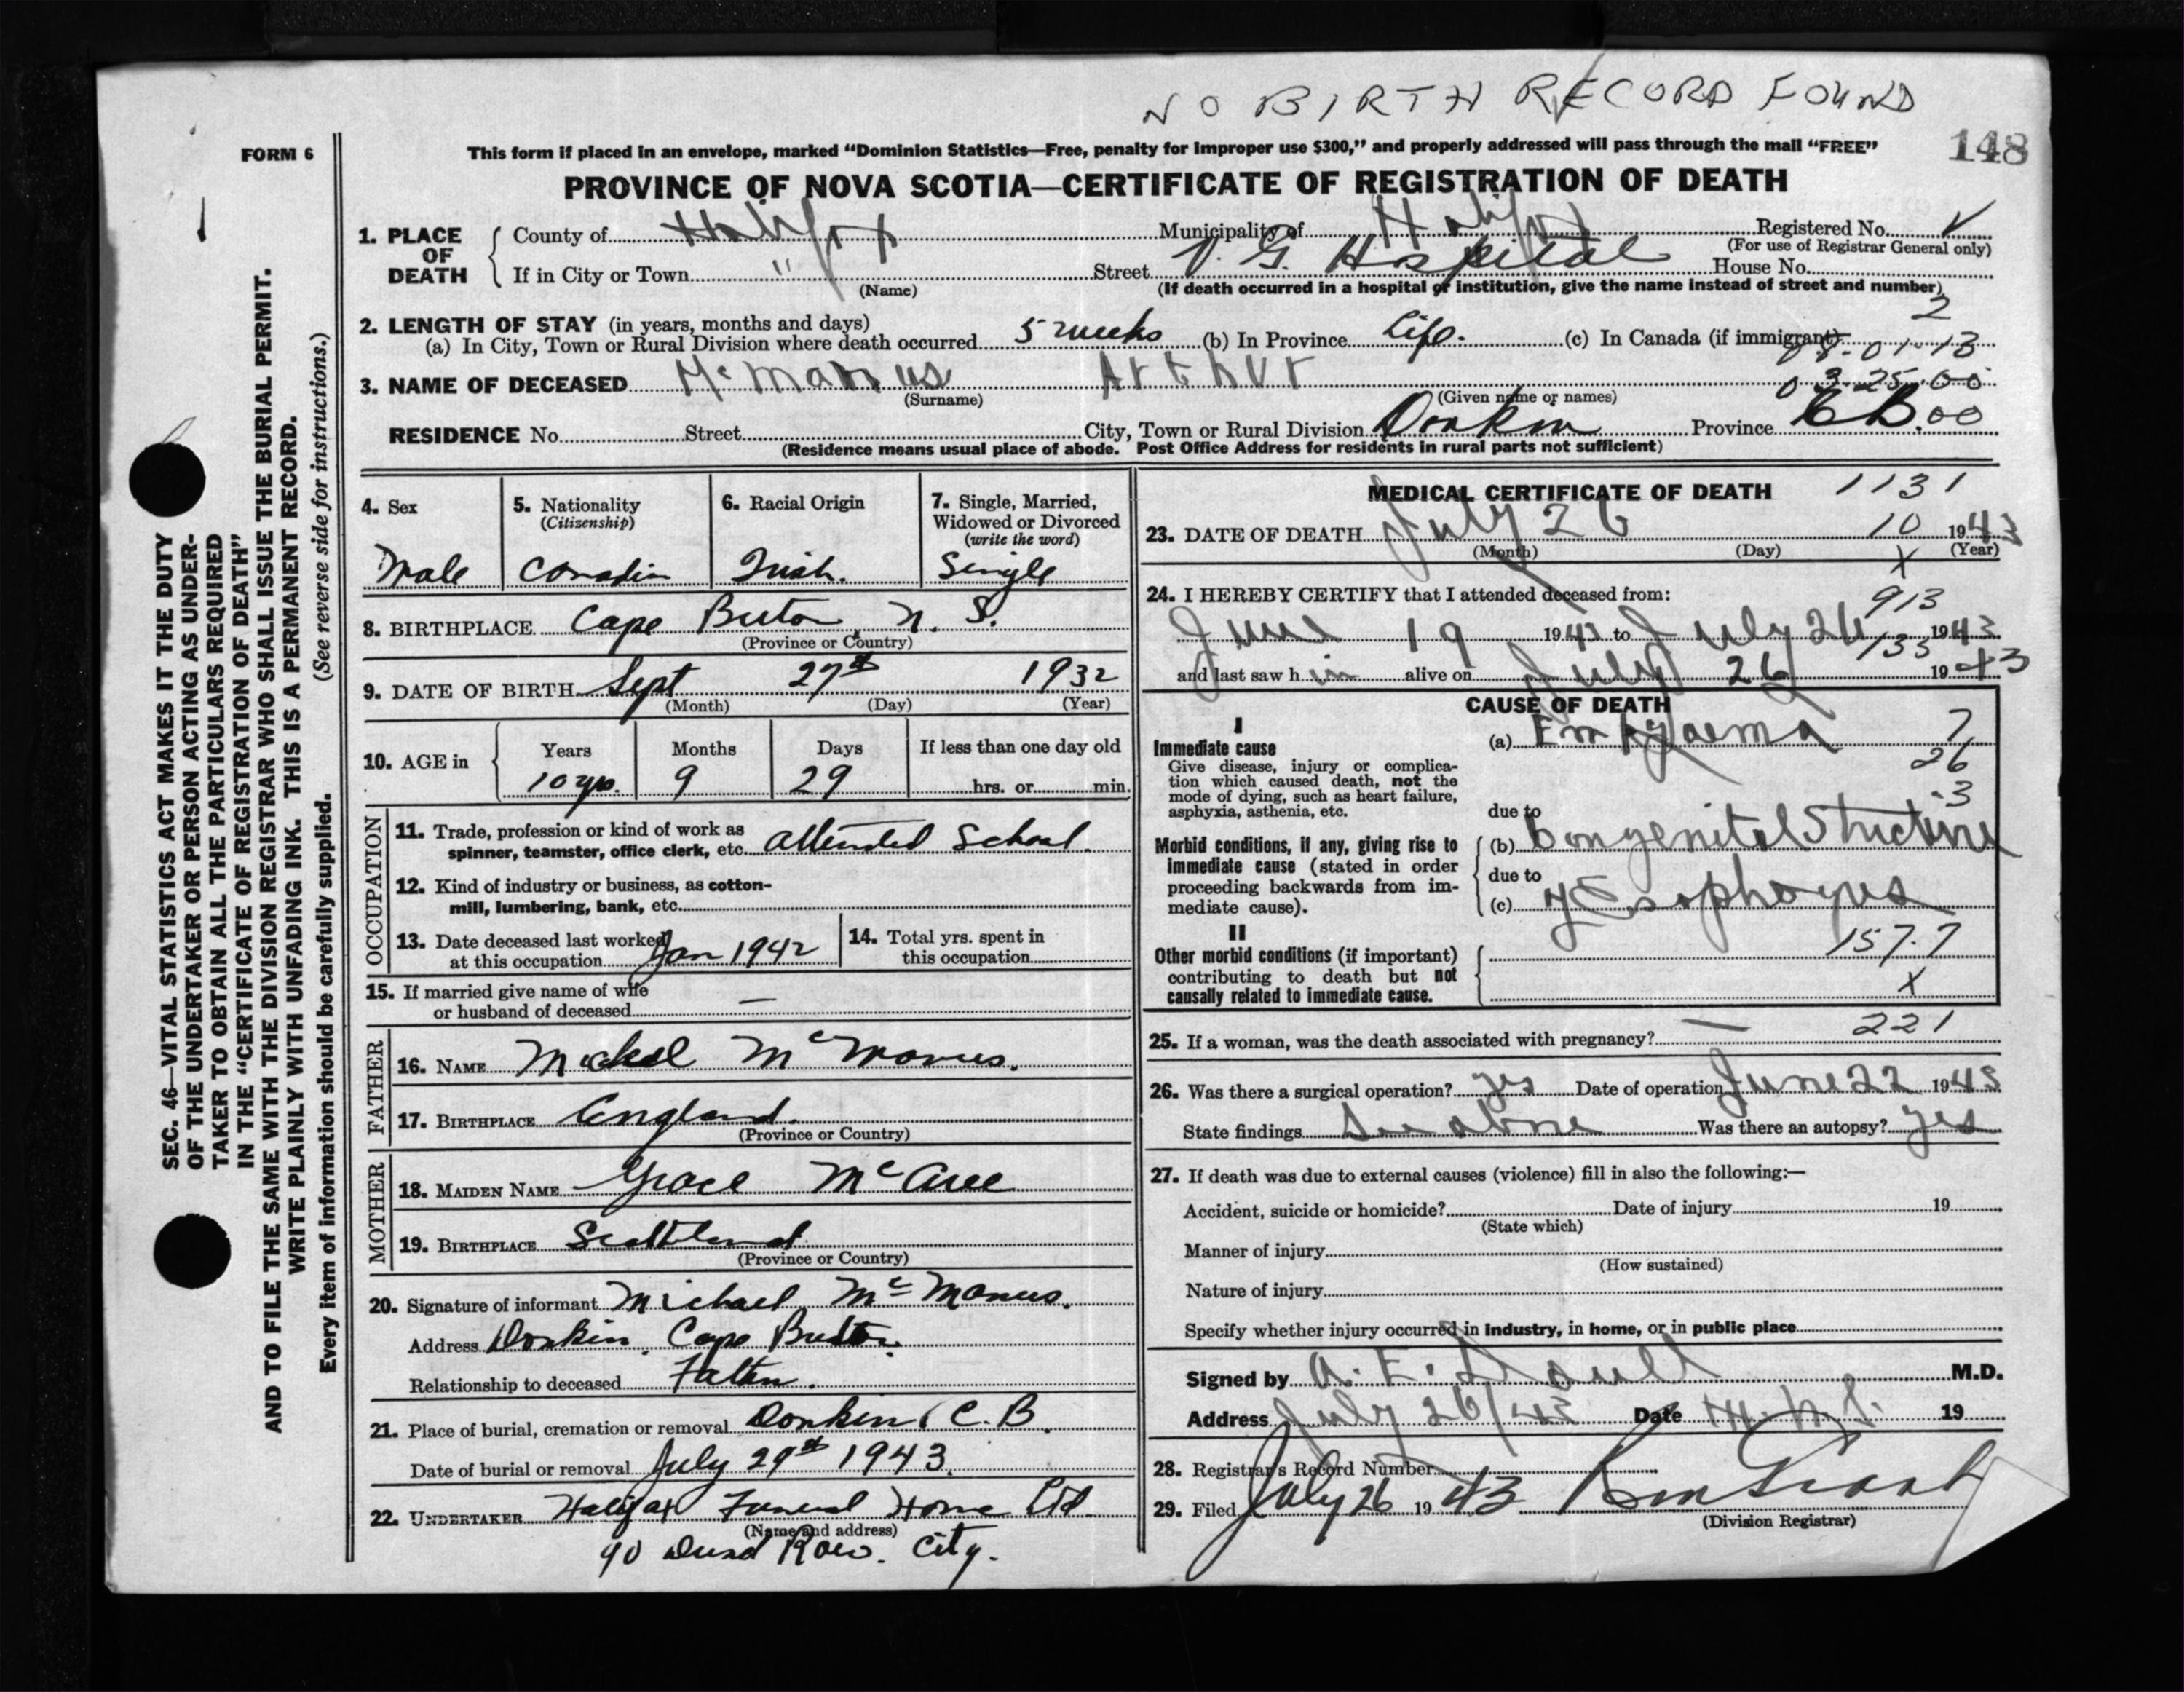 NO BIRTH RECORD FOUND
FORM 6
This form if placed in an envelope, marked “Dominion Statistics—Free, penalty for improper use $300,” and properly addressed will pass through the mail “FREE”
148
PROVINCE OF NOVA SCOTIA—CERTIFICATE OF REGISTRATION OF DEATH
1. PLACE OF DEATH
County of Halifax Municipality of Halifax Registered No.
(For use of Registrar General only)
If in City or Town " Street V. G. Hospital House No.
(Name) (If death occurred in a hospital or institution, give the name instead of street and number)
2
2. LENGTH OF STAY (in years, months and days)
(a) In City, Town or Rural Division where death occurred 5 weeks (b) In Province Life. (c) In Canada (if immigrant)
08-01-13
3. NAME OF DECEASED McManus Arthur
03-25-00
(Surname) (Given name or names)
RESIDENCE No. Street City, Town or Rural Division Donkin Province C B. 00
(Residence means usual place of abode. Post Office Address for residents in rural parts not sufficient)
4. Sex
Male
5. Nationality
(Citizenship)
Canadian
6. Racial Origin
Irish.
7. Single, Married,
Widowed or Divorced
(write the word)
Single
8. BIRTHPLACE Cape Breton, N. S.
(Province or Country)
9. DATE OF BIRTH Sept 27th 1932
(Month) (Day) (Year)
10. AGE in
Years Months Days If less than one day old
10 yrs. 9 29 hrs. or min.
OCCUPATION
11. Trade, profession or kind of work as
spinner, teamster, office clerk, etc. attended School.
12. Kind of industry or business, as cotton-
mill, lumbering, bank, etc.
13. Date deceased last worked
at this occupation Jan 1942
14. Total yrs. spent in
this occupation
15. If married give name of wife
or husband of deceased —
FATHER
16. NAME Micheal McManus.
17. BIRTHPLACE England.
(Province or Country)
MOTHER
18. MAIDEN NAME Grace
19. BIRTHPLACE Scotland
(Province or Country)
20. Signature of informant Michael McManus.
Address Donkin, Cape Breton.
Relationship to deceased Father.
21. Place of burial, cremation or removal Donkin, C.B.
Date of burial or removal July 29th 1943.
22. UNDERTAKER Halifax Funeral Home Ltd.
(Name and address)
90 Row. City.
MEDICAL CERTIFICATE OF DEATH 1131
23. DATE OF DEATH July 26 10 1943
(Month) (Day) (Year)
X
24. I HEREBY CERTIFY that I attended deceased from:
913
June 19 1943 to July 26 1943
133
and last saw him alive on July 26 1943
CAUSE OF DEATH
I
Immediate cause
Give disease, injury or complica-
tion which caused death, not the
mode of dying, such as heart failure,
asphyxia, asthenia, etc.
(a) Empyaema 7
26
-3
due to
Morbid conditions, if any, giving rise to
immediate cause (stated in order
proceeding backwards from im-
mediate cause).
(b) Congenital Stricture
due to
(c) of Esophagus
II
Other morbid conditions (if important)
contributing to death but not
causally related to immediate cause.
157.7
X
221
25. If a woman, was the death associated with pregnancy? —
26. Was there a surgical operation? yes Date of operation June 22 1943
State findings See above Was there an autopsy? yes
27. If death was due to external causes (violence) fill in also the following:—
Accident, suicide or homicide? Date of injury 19
(State which)
Manner of injury
(How sustained)
Nature of injury
Specify whether injury occurred in industry, in home, or in public place
Signed by A. E. Doull M.D.
Address July 26/43 Date 19
28. Registrar's Record Number
29. Filed July 26 1943
(Division Registrar)
SEC. 46—VITAL STATISTICS ACT MAKES IT THE DUTY
OF THE UNDERTAKER OR PERSON ACTING AS UNDER-
TAKER TO OBTAIN ALL THE PARTICULARS REQUIRED
IN THE “CERTIFICATE OF REGISTRATION OF DEATH”
AND TO FILE THE SAME WITH THE DIVISION REGISTRAR WHO SHALL ISSUE THE BURIAL PERMIT.
WRITE PLAINLY WITH UNFADING INK. THIS IS A PERMANENT RECORD.
Every item of information should be carefully supplied. (See reverse side for instructions.)